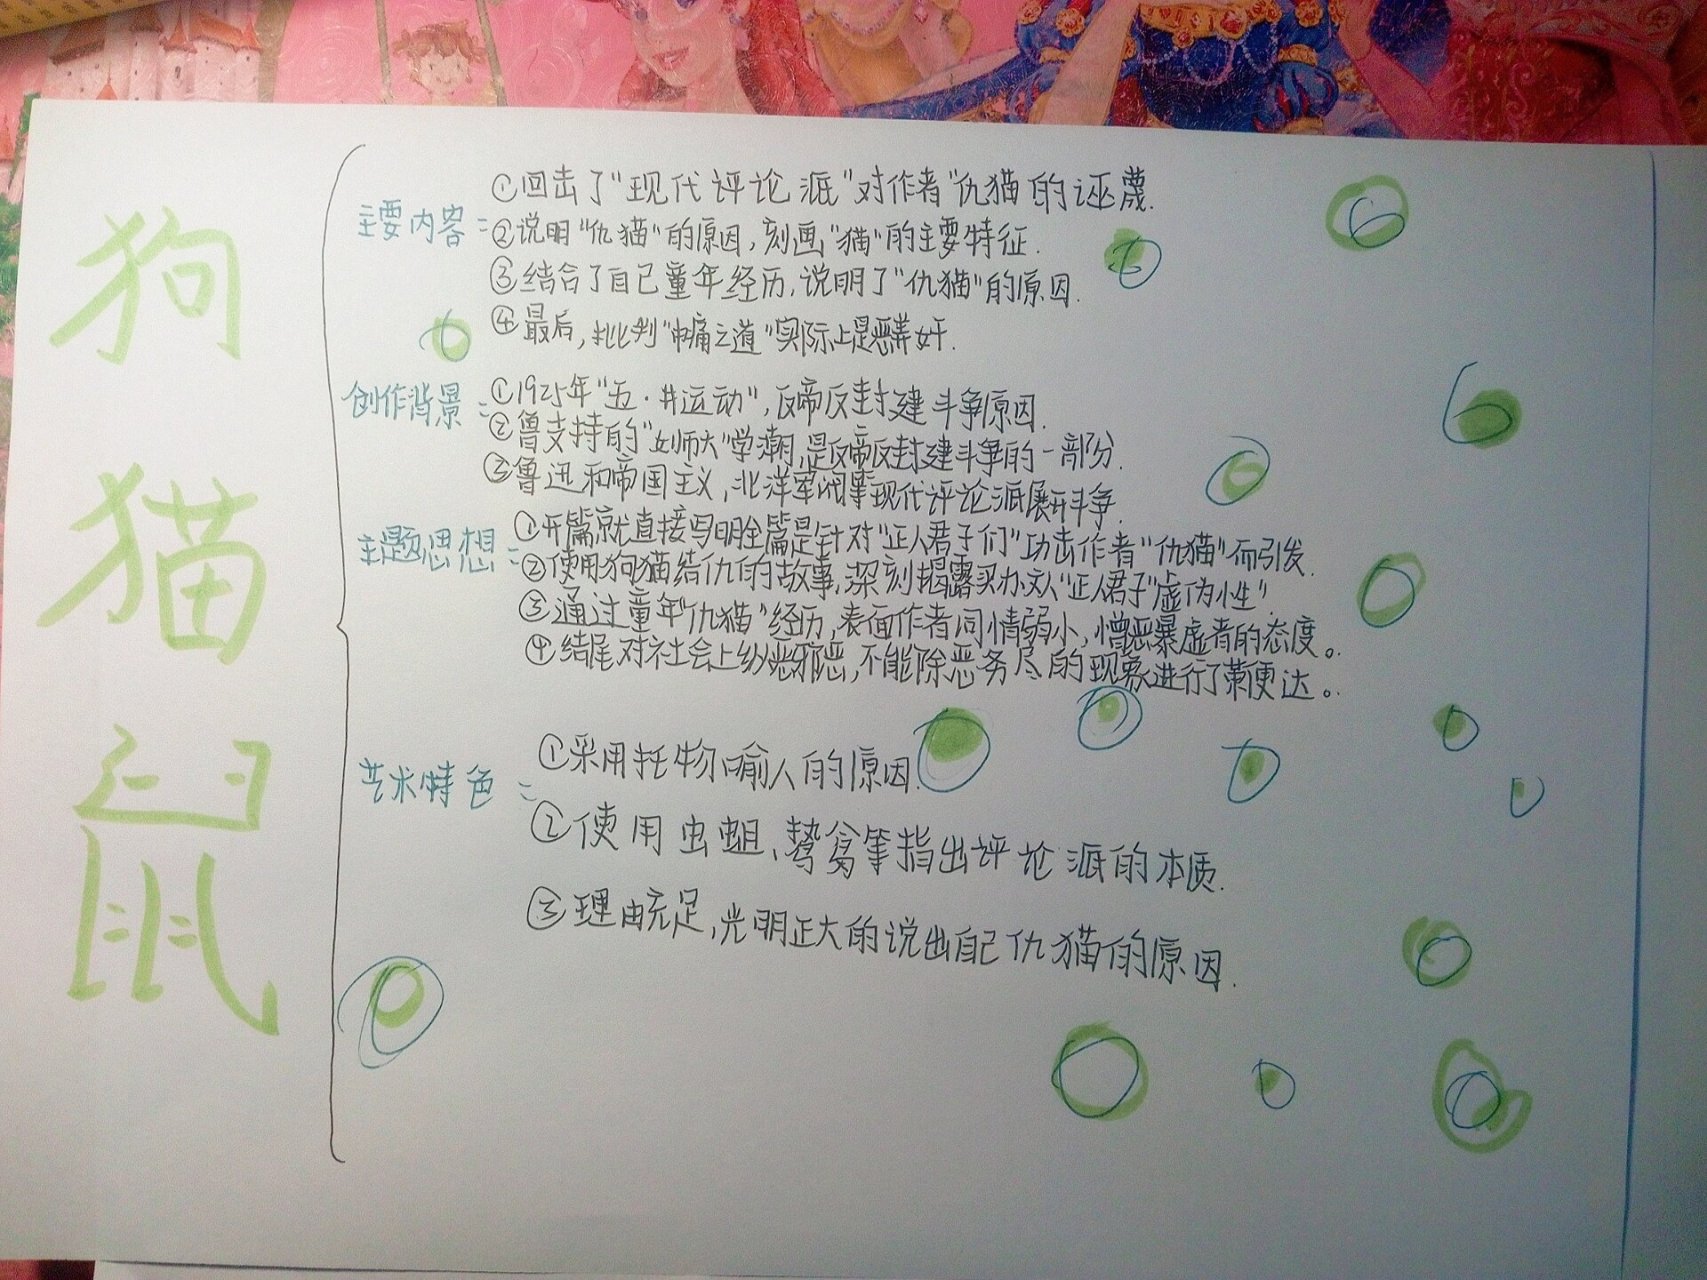 狗猫鼠
主要内容：
①回击了"现代评论派"对作者"仇猫的诬蔑.
②说明"仇猫"的原因,刻画"猫"的主要特征.
③结合了自己童年经历,说明了"仇猫"的原因.
④最后,批判"中庸之道"实际上是恶弄奸.
创作背景：
①1925年"五·卅运动",反帝反封建斗争原因.
②鲁支持的"女师大"学潮,是反帝反封建斗争的一部分.
③鲁迅和帝国主义,北洋军阀等现代评论派展开斗争.
主题思想：
①开篇就直接写明全篇是针对"正人君子们"功击作者"仇猫"而引发.
②使用狗猫结仇的故事,深刻揭露买办文人"正人君子"虚伪小性".
③通过童年"仇猫"经历,表面作者同情弱小,憎恶暴虐者的态度。
④结尾对社会上纵恶邪恶,不能除恶务尽的现象进行了便达。
艺术特色：
①采用托物喻人的原因.
②使用虫蛆、鸷禽等指出评论派的本质.
③理由充足,光明正大的说出自己仇猫的原因.